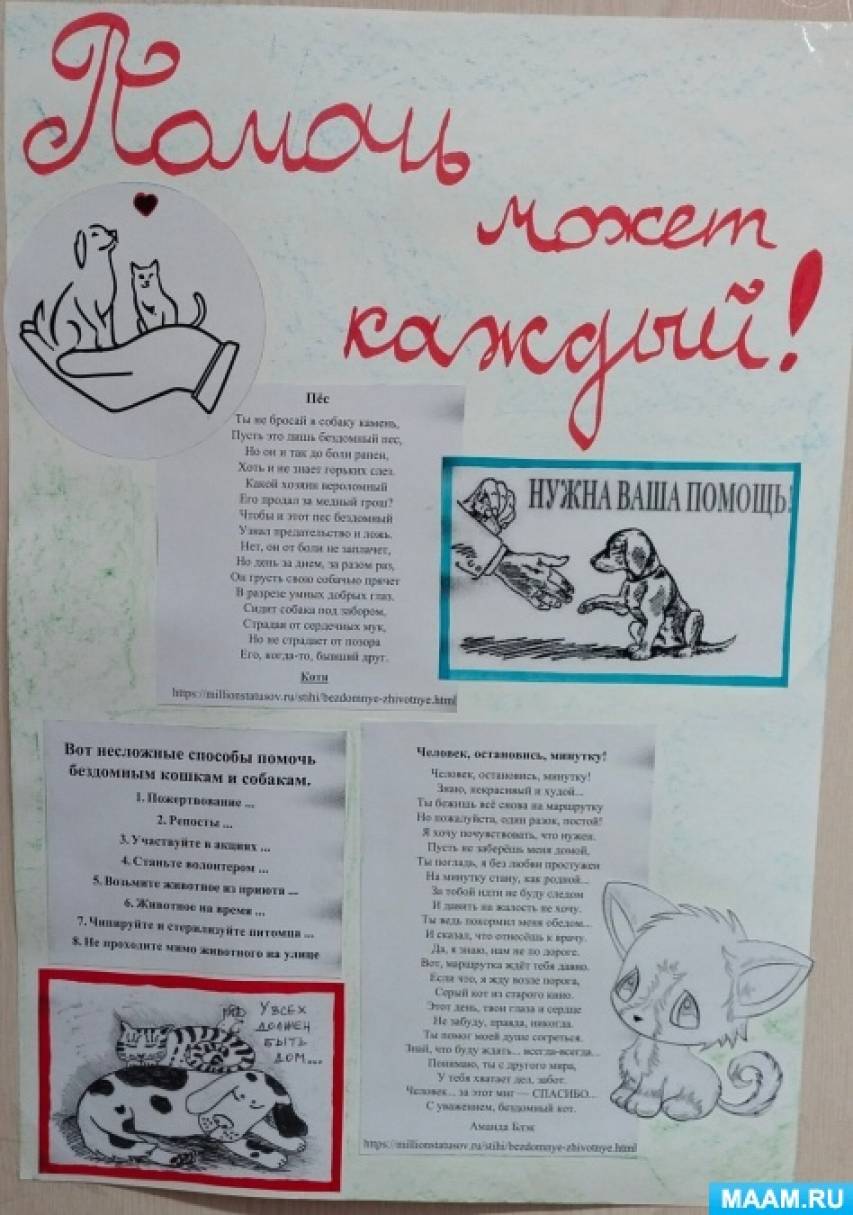 Помочь
может
каждый!
Пёс
Ты не бросай в собаку камень,
Пусть это лишь бездомный пес,
Но он и так до боли ранен,
Хоть и не знает горьких слез.
Какой хозяин вероломный
Его продал за медный грош?
Чтобы и этот пес бездомный
Узнал предательство и ложь.
Нет, он от боли не заплачет,
Но день за днем, за разом раз,
Он грусть свою собачью прячет
В разрезе умных добрых глаз.
Сидит собака под забором,
Страдая от сердечных мук,
Но не страдает от позора
Его, когда-то, бывший друг.
Коти
https://millionstatusov.ru/stihi/bezdomnye-zhivotnye.html
НУЖНА ВАША ПОМОЩЬ!
Вот несложные способы помочь
бездомным кошкам и собакам.
1. Пожертвование ...
2. Репосты ...
3. Участвуйте в акциях ...
4. Станьте волонтером ...
5. Возьмите животное из приюта ...
6. Животное на время ...
7. Чипируйте и стерилизуйте питомца ...
8. Не проходите мимо животного на улице
Человек, остановись, минутку!
Человек, остановись, минутку!
Знаю, некрасивый и худой...
Ты бежишь всё снова на маршрутку
Но пожалуйста, один разок, постой!
Я хочу почувствовать, что нужен.
Пусть не заберёшь меня домой,
Ты погладь, я без любви простужен
На минутку стану, как родной...
За тобой идти не буду следом
И давить на жалость не хочу.
Ты ведь покормил меня обедом...
И сказал, что отнесёшь к врачу.
Да, я знаю, нам не по дороге.
Вот, маршрутка ждёт тебя давно.
Если что, я жду возле порога,
Серый кот из старого кино.
Этот день, твои глаза и сердце
Не забуду, правда, никогда.
Ты помог моей душе согреться.
Знай, что буду ждать... всегда-всегда...
Понимаю, ты с другого мира,
У тебя хватает дел, забот.
Человек... за этот миг — СПАСИБО...
С уважением, бездомный кот.
Аманда Блэк
https://millionstatusov.ru/stihi/bezdomnye-zhivotnye.html
У ВСЕХ
ДОЛЖЕН
БЫТЬ
ДОМ...
MAAM.RU